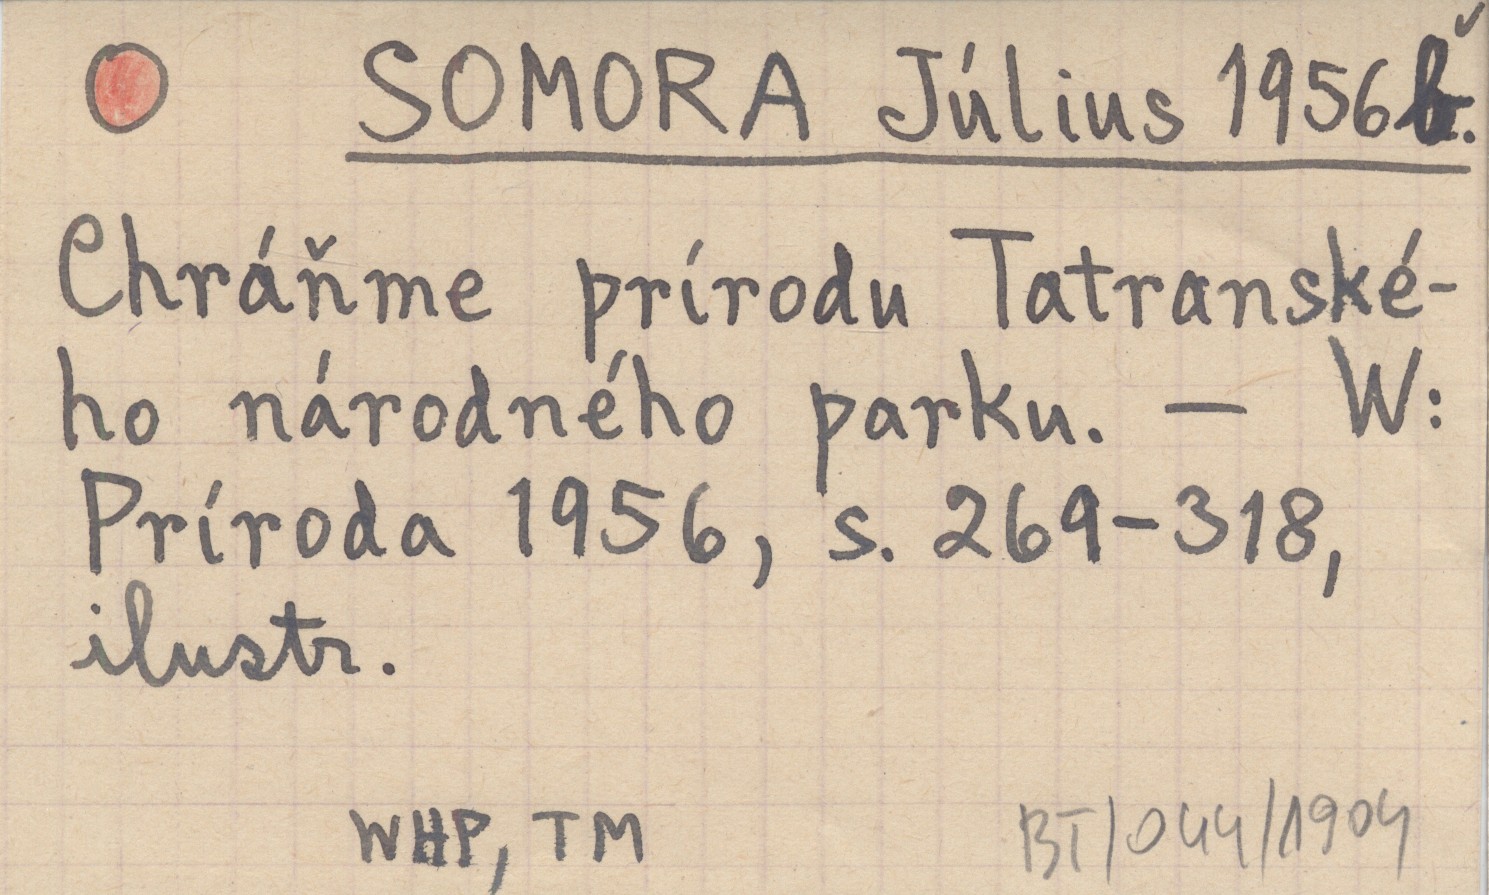 SOMORA Július 1956b.
Chráňme prírodu Tatranské-
ho národného parku. — W:
Príroda 1956, s. 269-318,
ilustr.
WHP, TM
BT/044/1904